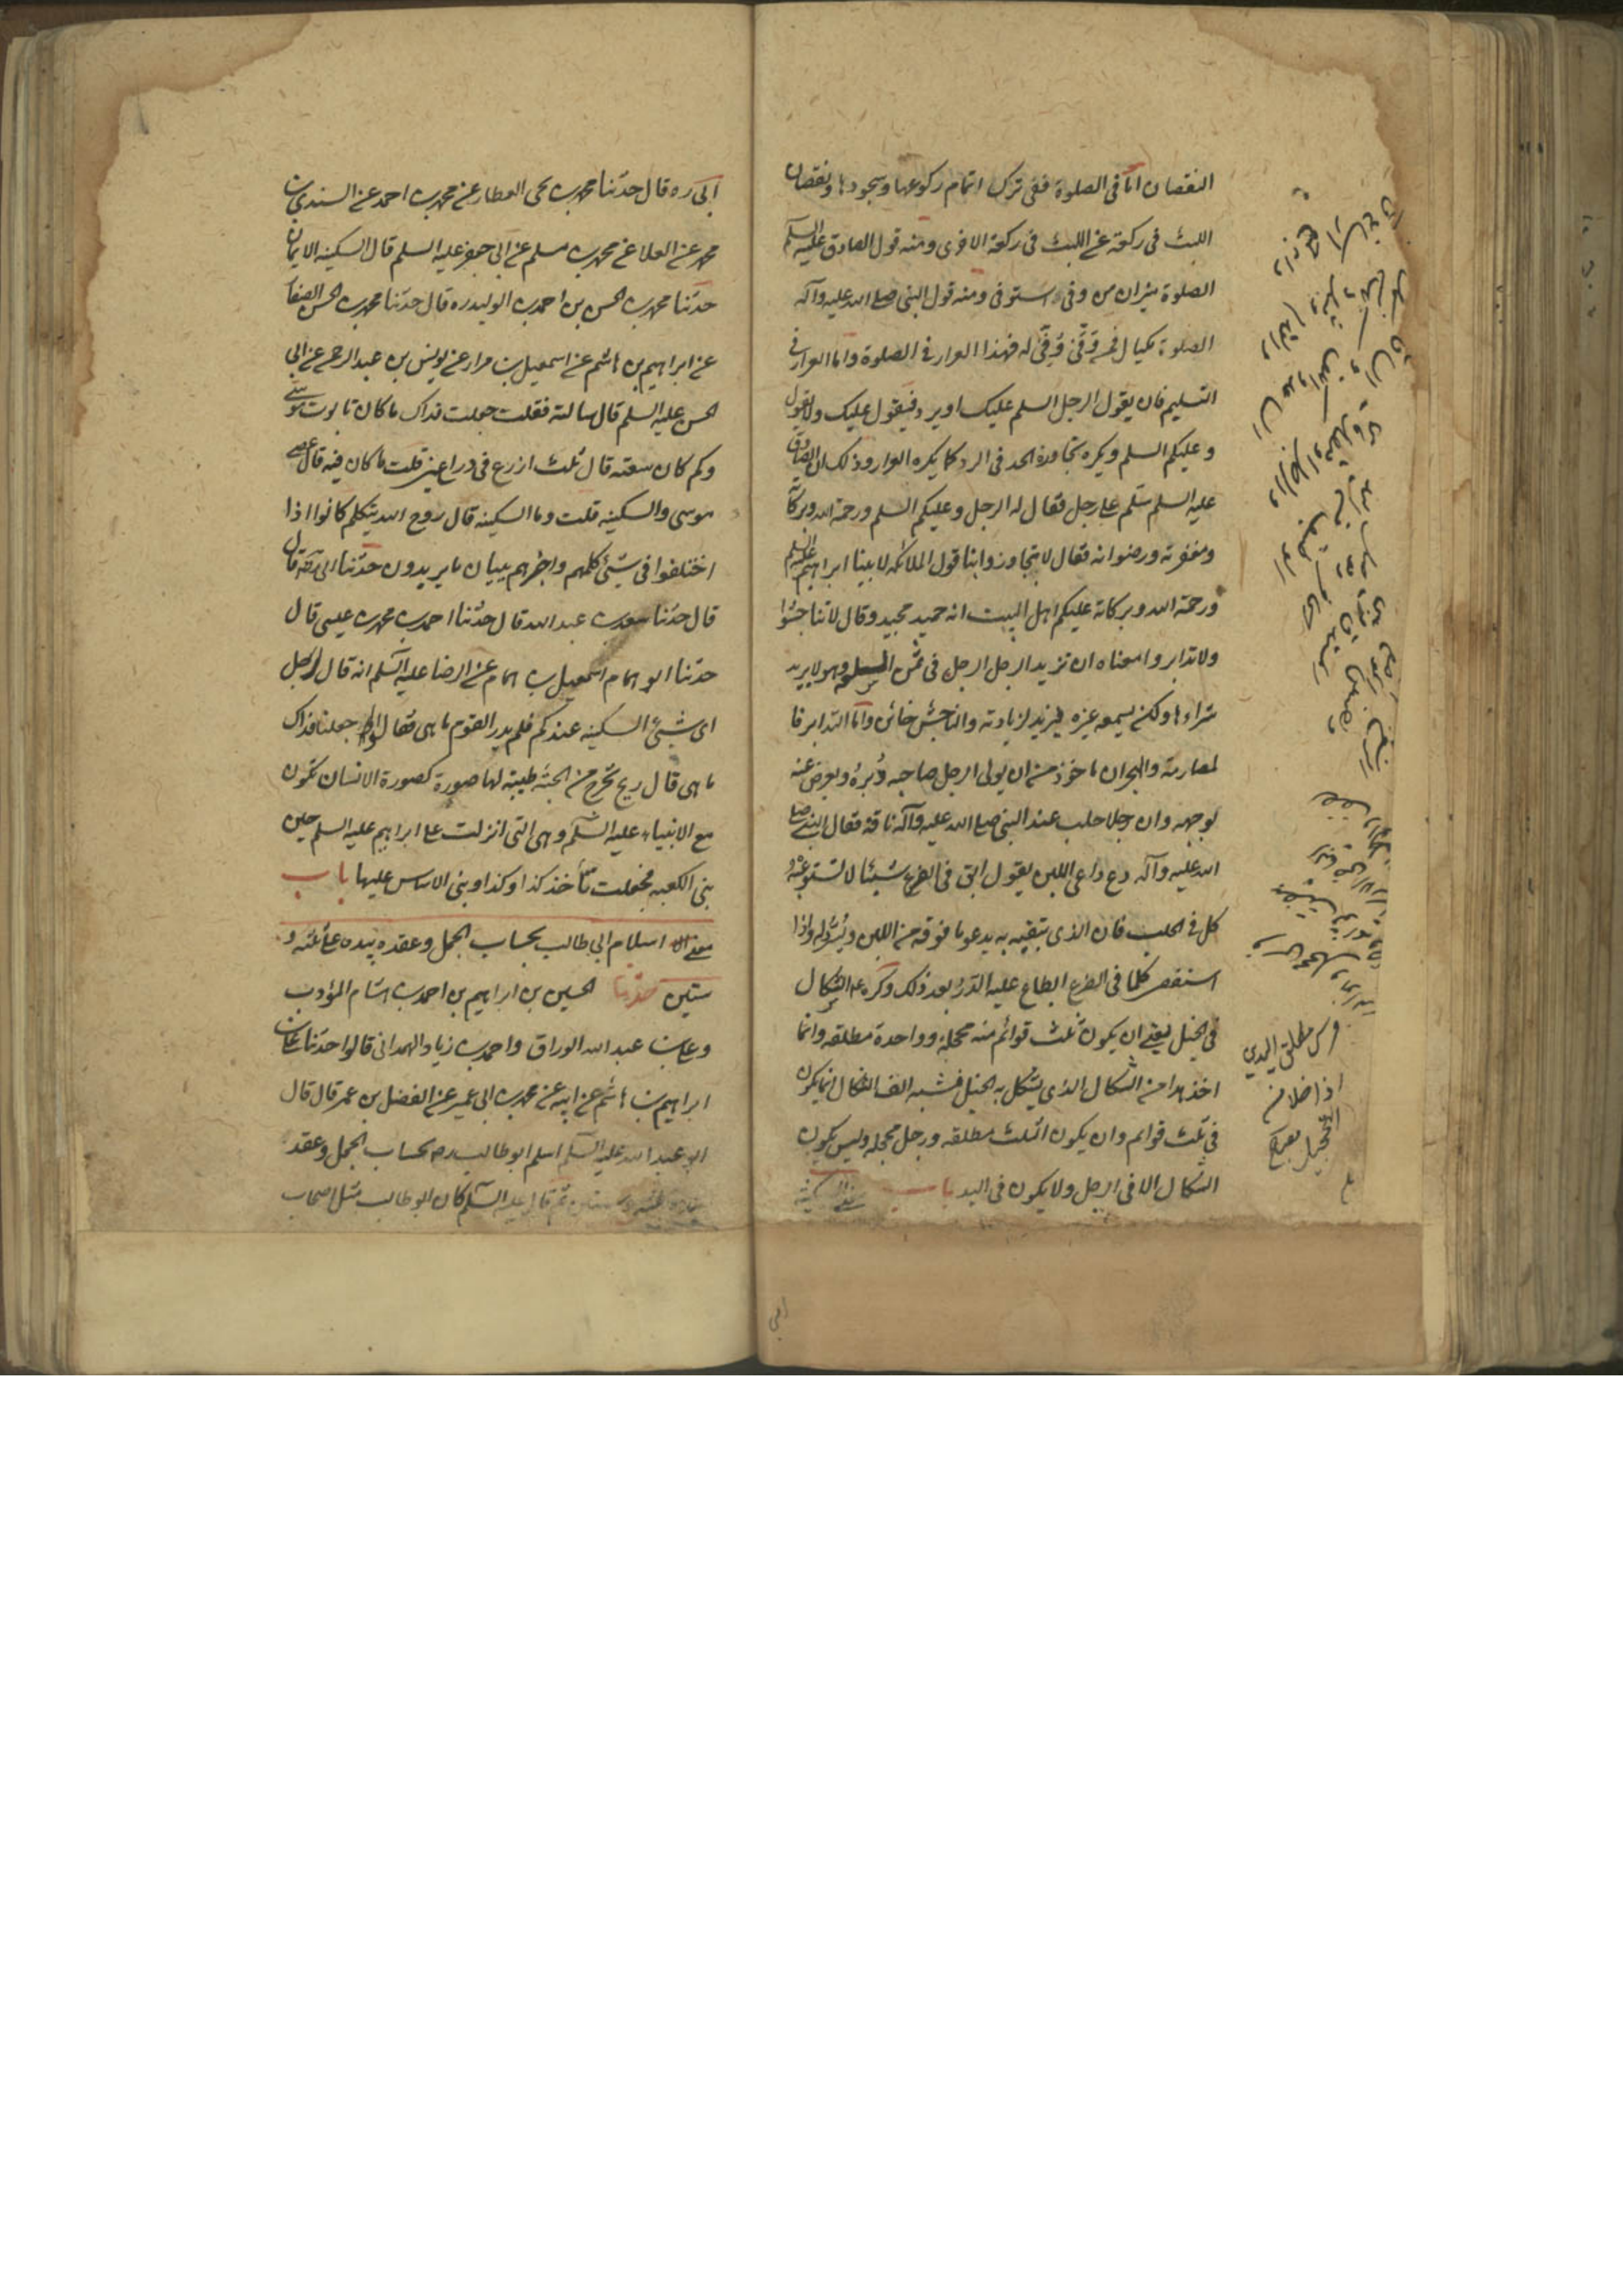 النقصان اما فى الصلوة ففى ترك اتمام ركوعها وسجودها ونقصان
اللبث فى ركعة عن اللبث فى ركعة الاخرى ومنه قول الصادق عليه السلم
الصلوة ميزان من وفى استوفى ومنه قول النبى صلى الله عليه وآله
الصلوة مكيال فمن وفى وفى له فهذا الغرار فى الصلوة واما الغرار فى
التسليم فان يقول الرجل السلم عليك او يرد فيقول عليك ولا يقول
وعليكم السلم ويكره تجاوزة الحد فى الرد كما يكره الغرار وذلك ان الصادق
عليه السلم سلم على رجل فقال له الرجل وعليكم السلم ورحمة الله وبركاته
ومغفرته ورضوانه فقال لا تجاوزوا بنا قول الملائكة لابينا ابراهيم عليه السلم
ورحمة الله وبركاته عليكم اهل البيت انه حميد مجيد وقال لا تناجشوا
ولا تدابروا معناه ان تزيد الرجل الرجل فى ثمن السلعة وهو لا يريد
شراءها ولكن يسمعه غيره فيزيد لزيادته والناجش خائن واما التدابر فا
لمصارمة والهجران ماخوذ من ان يولى الرجل صاحبه دبره ويعرض عنه
بوجهه وان رجلا حلب عند النبى صلى الله عليه وآله ناقة فقال النبى صلى
الله عليه وآله دع داعى اللبن يقول ابق فى الضرع شيئا لا تستوعبه
كل فى الحلب فان الذى تبقيه به يدعو ما فوقه من اللبن وينزله واذا
استقصى كلما فى الضرع ابطاء عليه الدر بعد ذلك وكره الشكال
فى الخيل يعنى ان يكون ثلث قوائم منه محجلة وواحدة مطلقه وانما
اخذ هذا من الشكال الذى يشكل به الخيل فشبه الف الشكال انما يكون
فى ثلث قوائم وان يكون الثلث مطلقه ورجل محجله وليس يكون
الشكال الا فى الرجل ولا يكون فى اليد باب معنى السكينة
ابى ره قال حدثنا محمد بن يحيى العطار عن محمد بن احمد عن السندى بن
محمد عن العلا عن محمد بن مسلم عن ابى جعفر عليه السلم قال السكينه الايمان
حدثنا محمد بن الحسن بن احمد بن الوليد ره قال حدثنا محمد بن الحسن الصفا
عن ابراهيم بن هاشم عن اسمعيل بن مرار عن يونس بن عبد الرحمن عن ابى
الحسن عليه السلم قال سالته فقلت جعلت فداك ما كان تابوت موسى
وكم كان سعته قال ثلث ازرع فى ذراعين قلت ما كان فيه قال عصى
موسى والسكينه قلت وما السكينه قال روح الله يتكلم كانوا اذا
اختلفوا فى شئ كلمهم واخبرهم ببيان ما يريدون حدثنا ابى ره قال
قال حدثنا سعد بن عبد الله قال حدثنا احمد بن محمد بن عيسى قال
حدثنا ابو همام اسمعيل بن همام عن الرضا عليه السلم انه قال لرجل
اى شئ السكينه عندكم فلم يدر القوم ما هى فقالوا جعلنا فداك
ما هى قال ريح تخرج من الجنة طيبة لها صورة كصورة الانسان تكون
مع الانبياء عليه السلم وهى التى انزلت على ابراهيم عليه السلم حين
بنى الكعبه فجعلت تأخذ كذا وكذا وبنى الاساس عليها باب
معنى اسلام ابى طالب بحساب الجمل وعقده بيده على ثلثه و
ستين حدثنا الحسين بن ابراهيم بن احمد بن هشام المؤدب
وعلى بن عبد الله الوراق واحمد بن زياد الهمدانى قالوا حدثنا على بن
ابراهيم بن هاشم عن ابيه عن محمد بن ابى عمير عن المفضل بن عمر قال قال
ابو عبد الله عليه السلم اسلم ابو طالب ره بحساب الجمل وعقد
بيده ثلثه وستين ثم قال عليه السلم كان ابو طالب مثل اصحاب